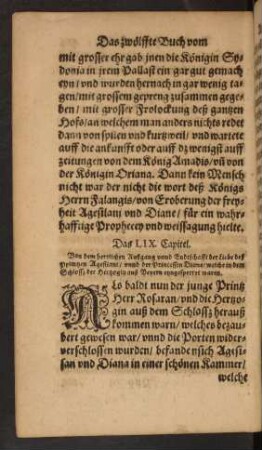 Das zwölffte Buch vom
mit grosser ehr gab jnen die Königin Sy-
donia in jrem Pallast ein gar gut gemach
eyn/ vnd wurden hernach in gar wenig ta-
gen/ mit grossem gepreng zusammen gege-
ben/ mit grosser Frolockung deß gantzen
Hofs/ an welchem man anders nichts redet
dann von spilen vnd kurtzweil/ vnd wartete
auff die ankunfft oder auff dz wenigst auff
zeitungen von dem König Amadis/ vn̄ von
der Königin Oriana. Dann kein Mensch
nicht war der nicht die wort deß Königs
Herrn Falangis/ von Eroberung der frey-
heit Agesilani vnd Diane/ für ein wahr-
hafftige Prophecey vnd weissagung hielte.
Das LIX. Capitel.
Von dem herrlichen Außgang vnnd Endtschafft der Liebe deß
Printzen Agesilani/ vnnd der Princessin Diane/ welche in dem
Schloß der Hertzogin auß Beyern eyngesperret waren.
ALso baldt nun der junge Printz
Herr Rosaran/ vnd die Hertzo-
gin auß dem Schloß herauß
kommen warn/ welches bezau-
bert gewesen war/ vnnd die Porten wider-
verschlossen wurden/ befanden sich Agesi-
lan vnd Diana in einer schönen Kammer/
welche